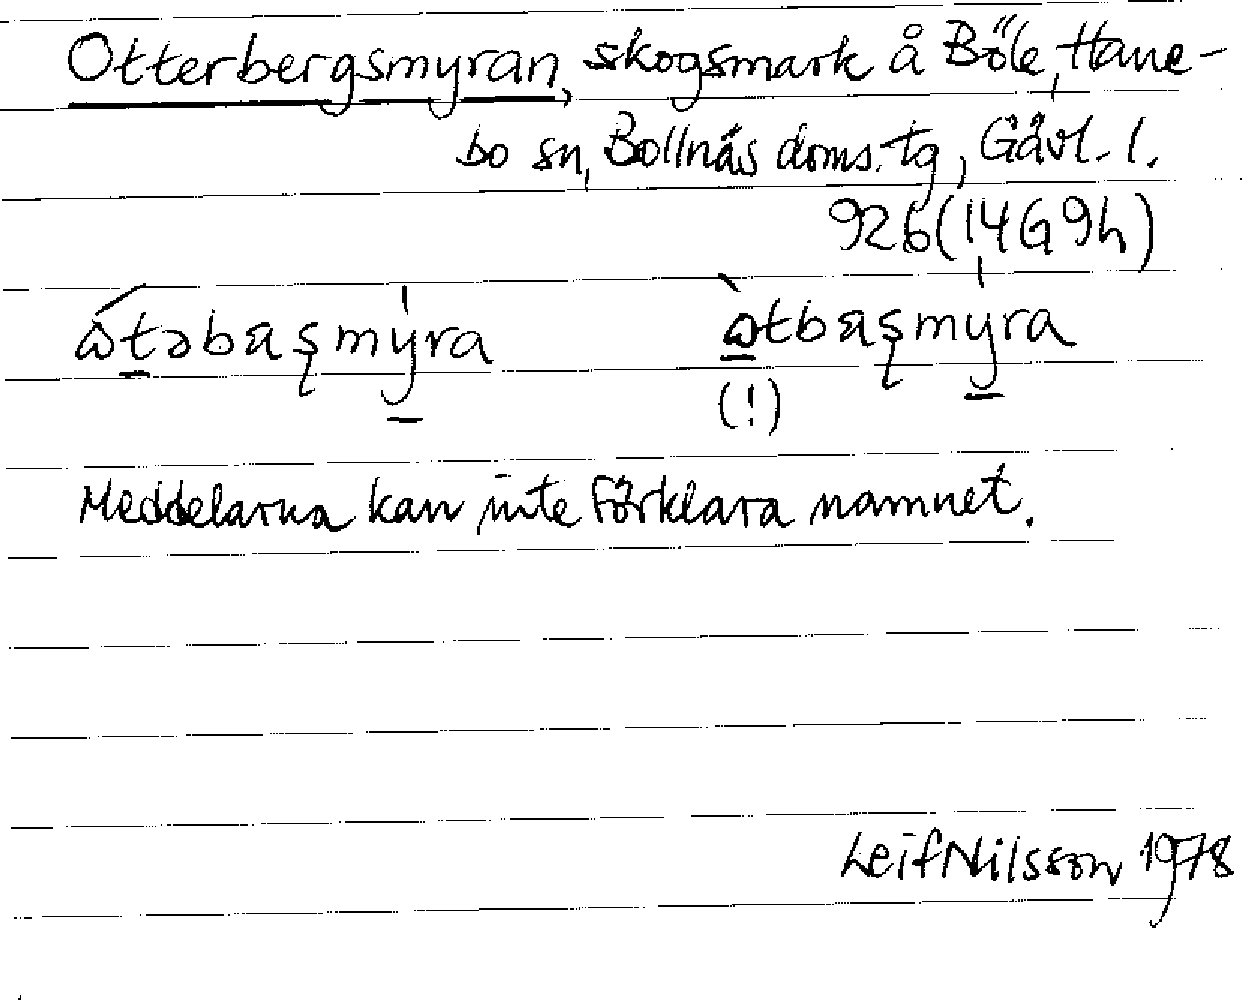 Otterbergsmyran, skogsmark å Böle, Hane-
bo sn, Bollnäs doms. tg, Gävl. l.
926 (14G 9h)
ɷ́təbaʂmy̍ra ɷ̀tbaʂmy̍ra
(!)
Meddelarna kan inte förklara namnet.
Leif Nilsson 1978